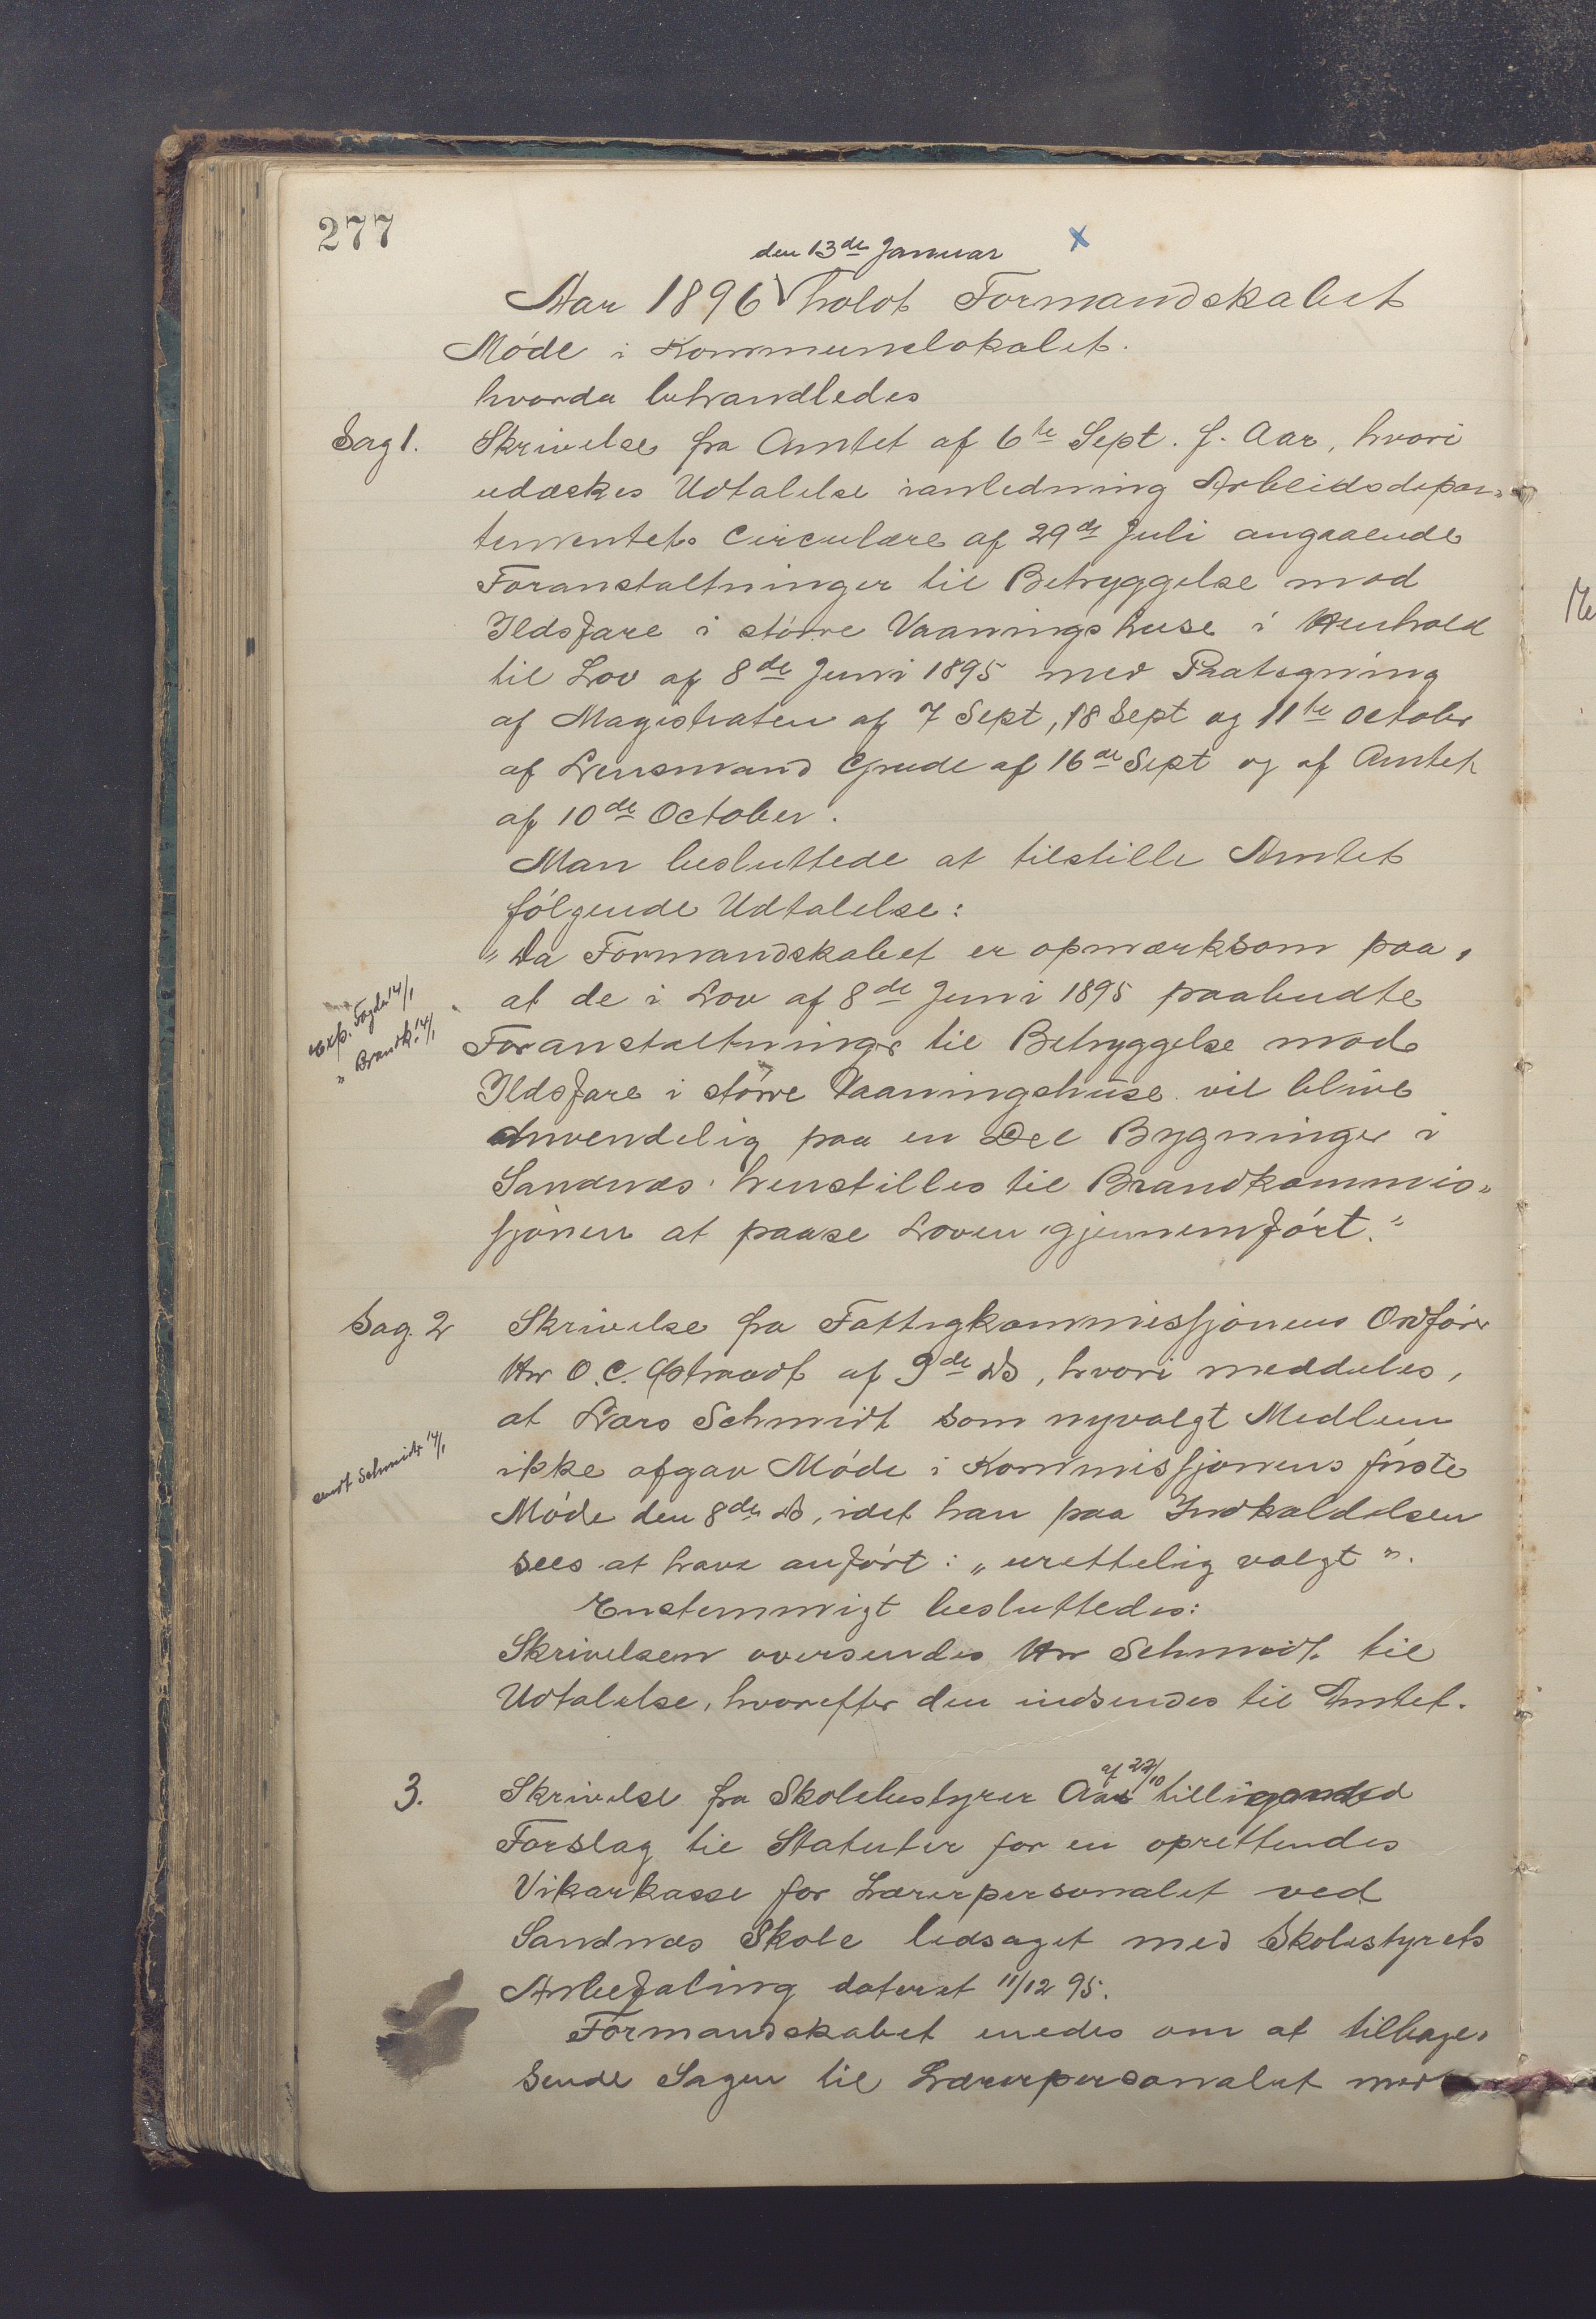 277
den 13de Januar x
Aar 1896 holdt Formandskabet
Møde i Kommunelokalet.
hvorda behandledes
Sag 1. Skrivelse fra Amtet af 6te Sept. f. Aar, hvori
udæskes Udtalelse ianledning Arbeidsdepar-
tementets Circulære af 29de Juli angaaende
Foranstaltninger til Betryggelse mod
Ildsfare i større Vaaningshuse i Henhold
til Lov af 8de Juni 1895 med Paategning
af Magistraten af 7 Sept, 18 Sept og 11te October
af Lensmand Grude af 16de Sept og af Amtet
af 10de October.
Man besluttede at tilstille Amtet
følgende Udtalelse:
"Da Formandskabet er opmærksom paa,
Exp. Fogden 14/1
at de i Lov af 8de Juni 1895 paabudte
" Brandk. 14/1
Foranstaltninger til Betryggelse mod
Ildsfare i større Vaaningshuse vil blive
Anvendelig paa en Del Bygninger i
Sandnæs, henstilles til Brandkommis-
sjonen at paase Loven gjennemført."
Sag. 2 Skrivelse fra Fattigkommissjonens Ordfører
Hr O. C. Qstraadt af 9de ds, hvori meddeles,
at Lars Schmidt som nyvalgt Medlem
sendt Schmidt 14/1
ikke afgav Møde i Kommissjonens første
Møde den 8de ds, idet han paa Indkaldelsen
sees at have anført: "urettelig valgt".
Enstemmigt besluttedes:
Skrivelsen oversendes Hr Schmidt til
Udtalelse, hvorefter den indsendes til Amtet.
af 22/10
3. Skrivelse fra Skolebestyrer Aas tilligemed
Forslag til Statuter for en oprettendes
Vikarkasse for Lærerpersonalet ved
Sandnæs Skole ledsaget med Skolestyrets
Anbefaling dateret 11/12 95.
Formandskabet enedes om at tilbage-
sende Sagen til Lærerpersonalet med